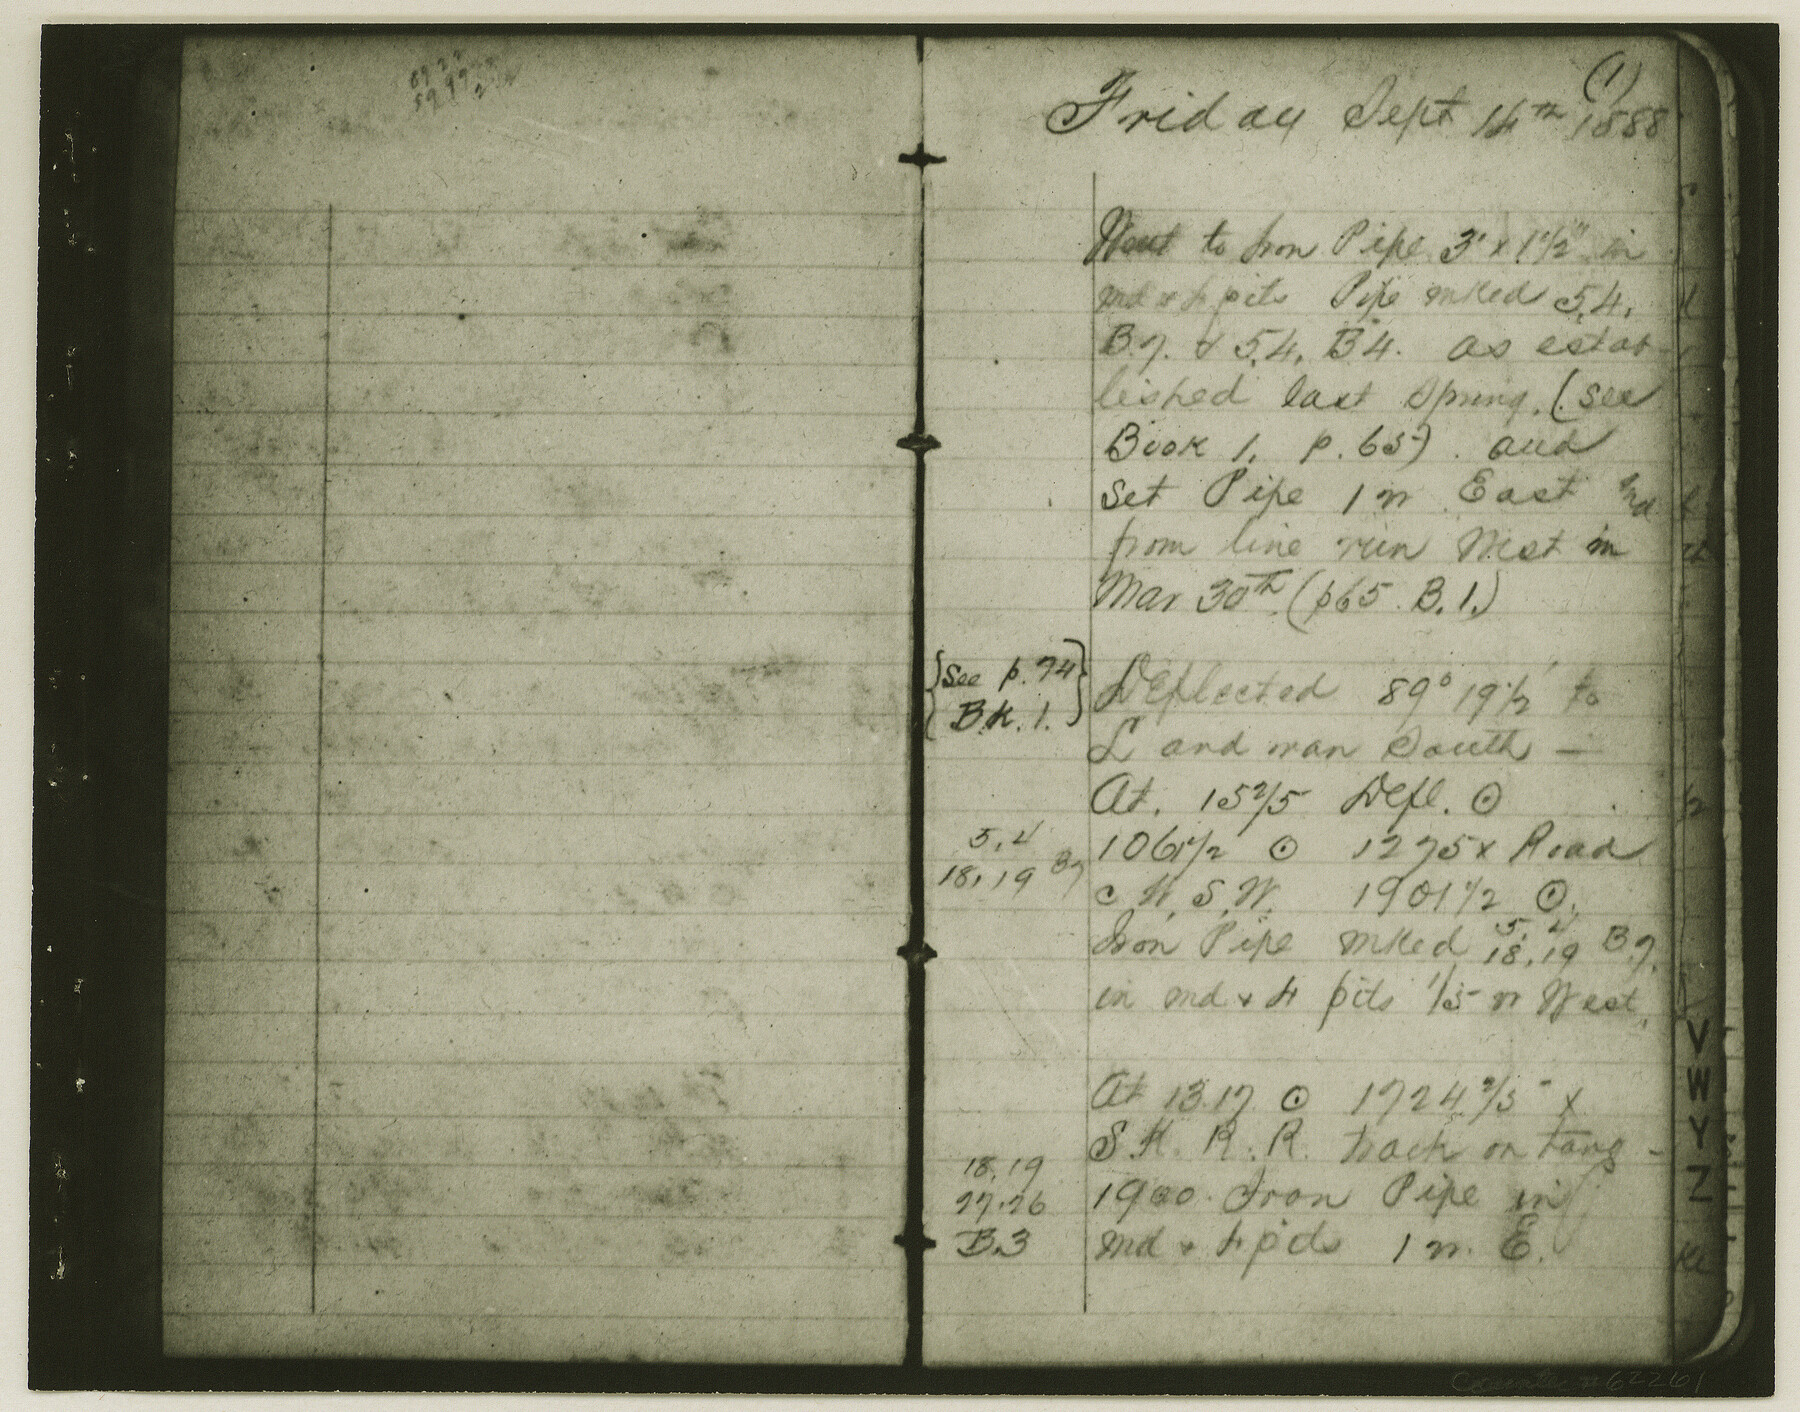 (1)
Friday Sept 14th 1888
Went to Iron Pipe 3' x 1 1/2" in
md & 4 pits Pipe mked 5,4,
B 7. & 5,4, B 4. as estab
lished last Spring. (see
Book 1. p. 65) . and
Set Pipe 1 vr East
from line run West in
Mar 30th (p65. B. 1.)
{See p. 74
B.K. 1.}
Deflected 89° 19 1/2' to
L and ran South —
At. 15 2/5 Defl. ⊙
5,4
18,19 B7
1061 1/2 ⊙ 1275 x Road
c N, S.W. 1901 1/2 ⊙.
5, 4
Iron Pipe mked 18,19 B.7.
in md & 4 pits 1/5 vr West.
At 1317 ⊙ 1724 2/5 x
R. R. track on Tang -
18,19
27,26
B.3
1900. Iron Pipe in
md & 4 pits 1 vr. E.
V
W
Y
Z
62261